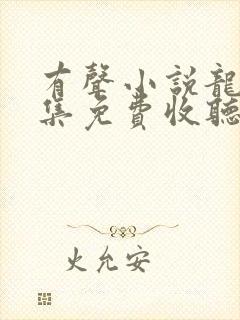 有聲小說龍
集免費收聽
火允安